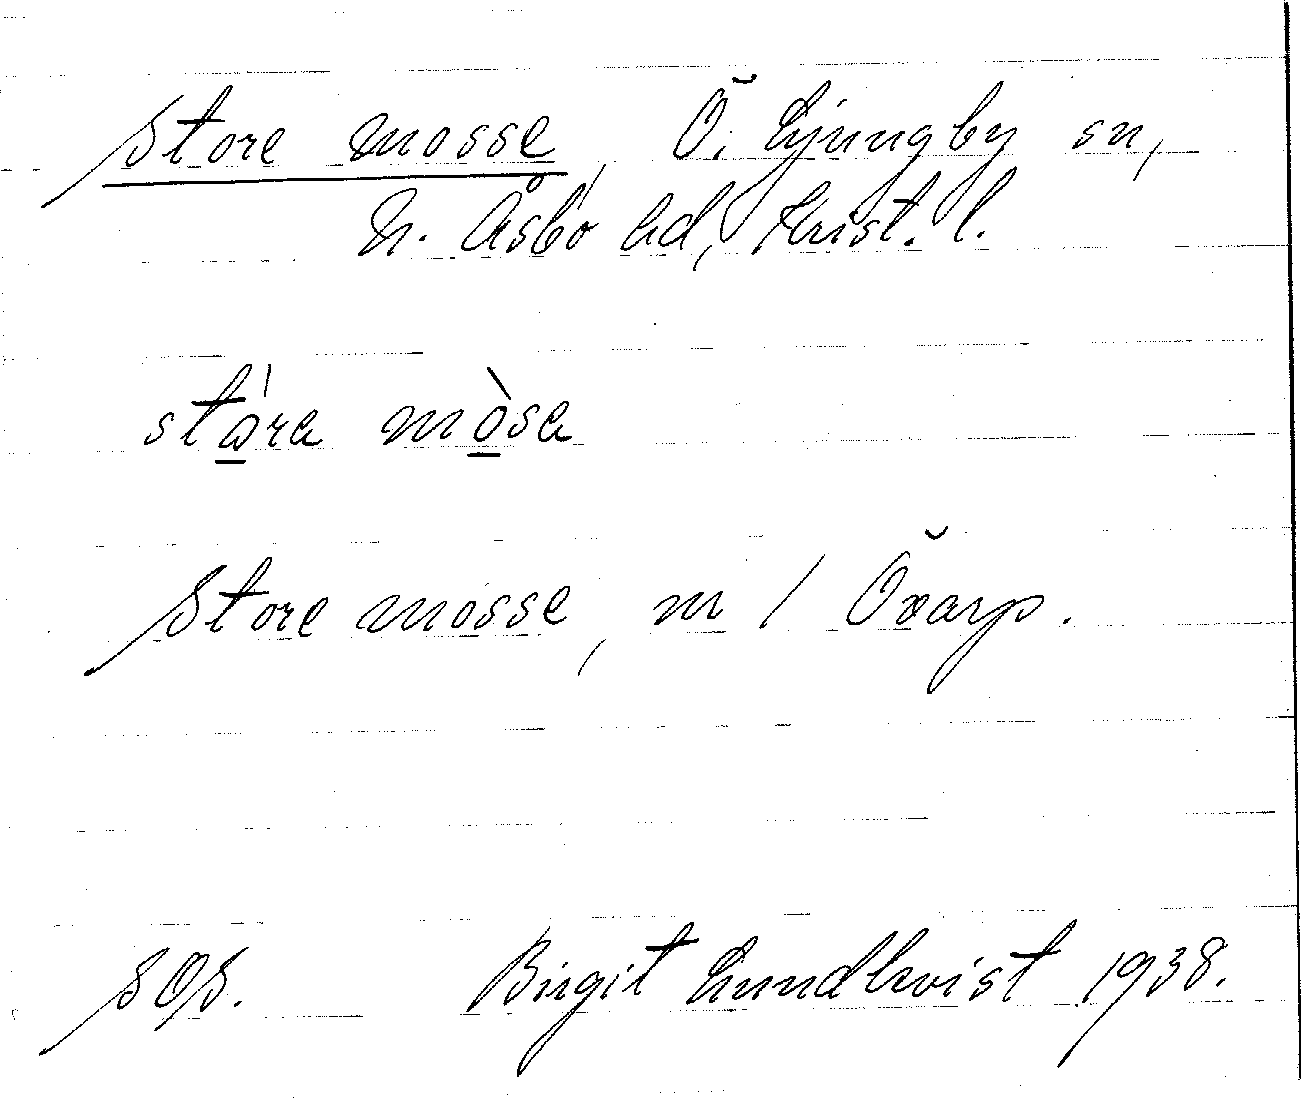 Store mosse, Ö. Ljungby sn,
N. Åsbo hd, Krist. l.
stóra mòsa
Store mosse, m / Öxarp.
SOS. Birgit Lundkvist 1938.